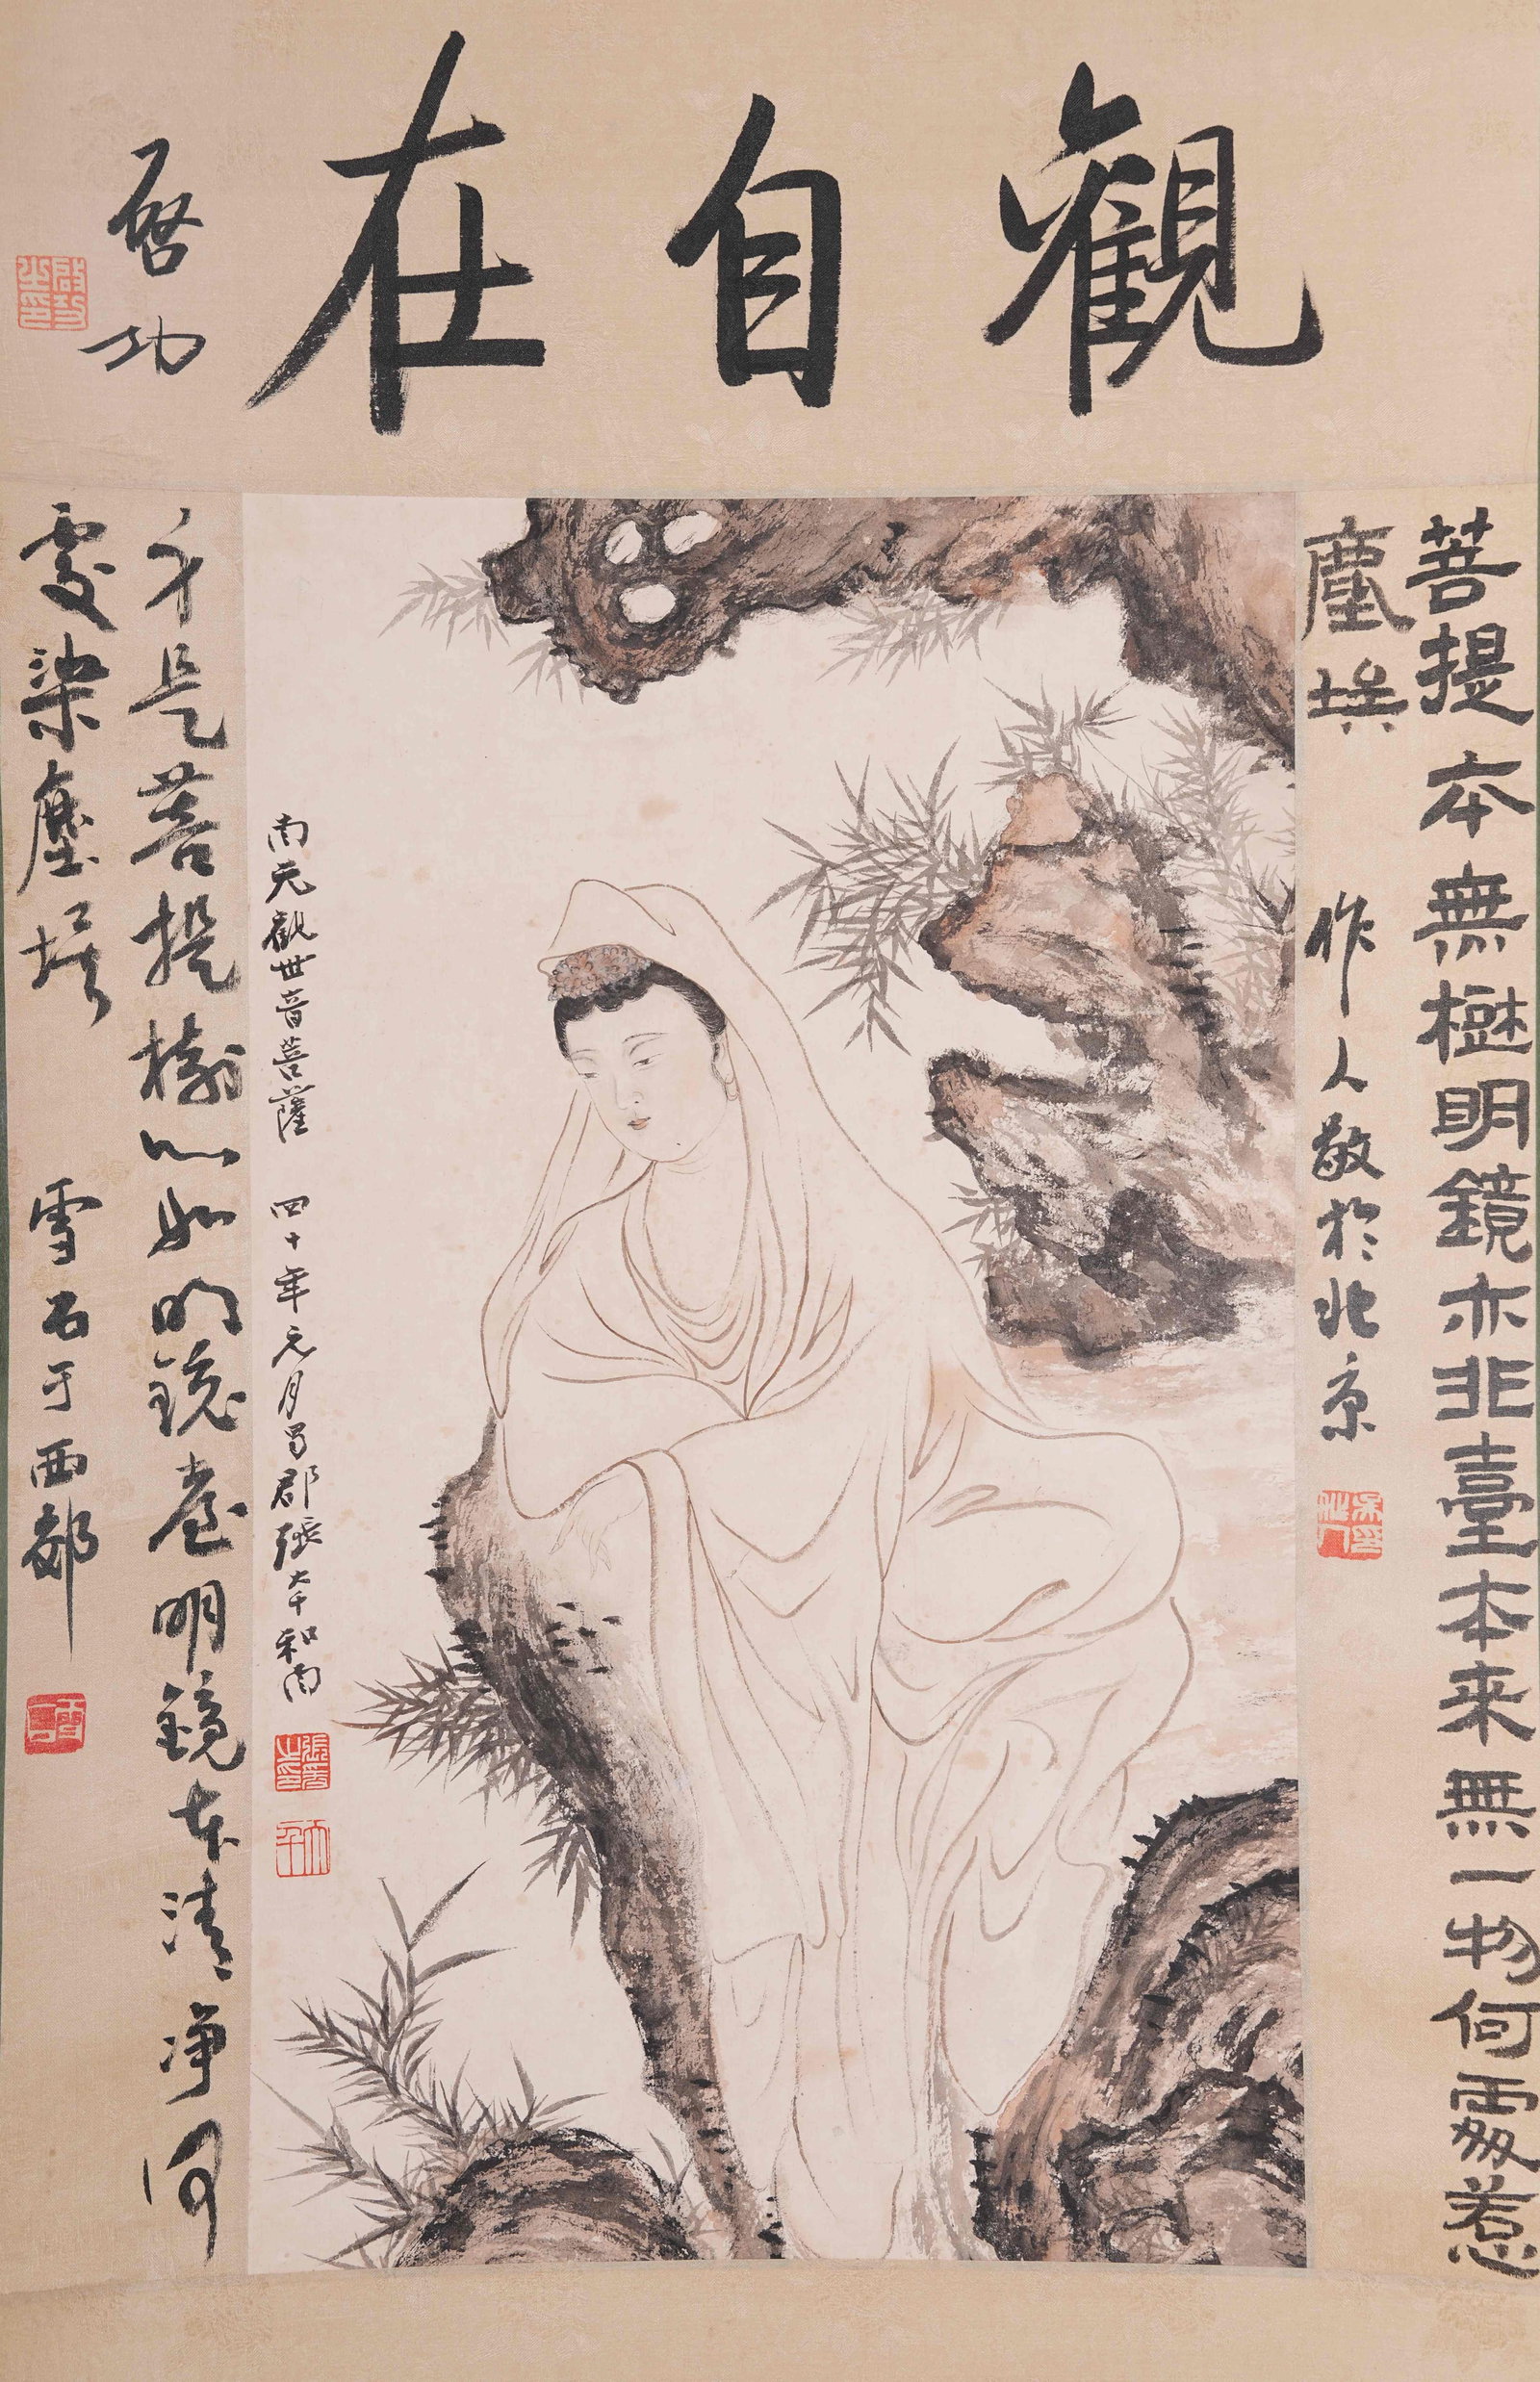 觀自在
啓功
啟功之印
菩提本無樹明鏡亦非臺本来無一物何處惹
塵埃 作人敬於北京
南无觀世音菩薩 四十年元月蜀郡張大千和南
張爰之印
大千
身是菩提樹心如明鏡臺明鏡本清净何
處染塵埃 雪石于西都